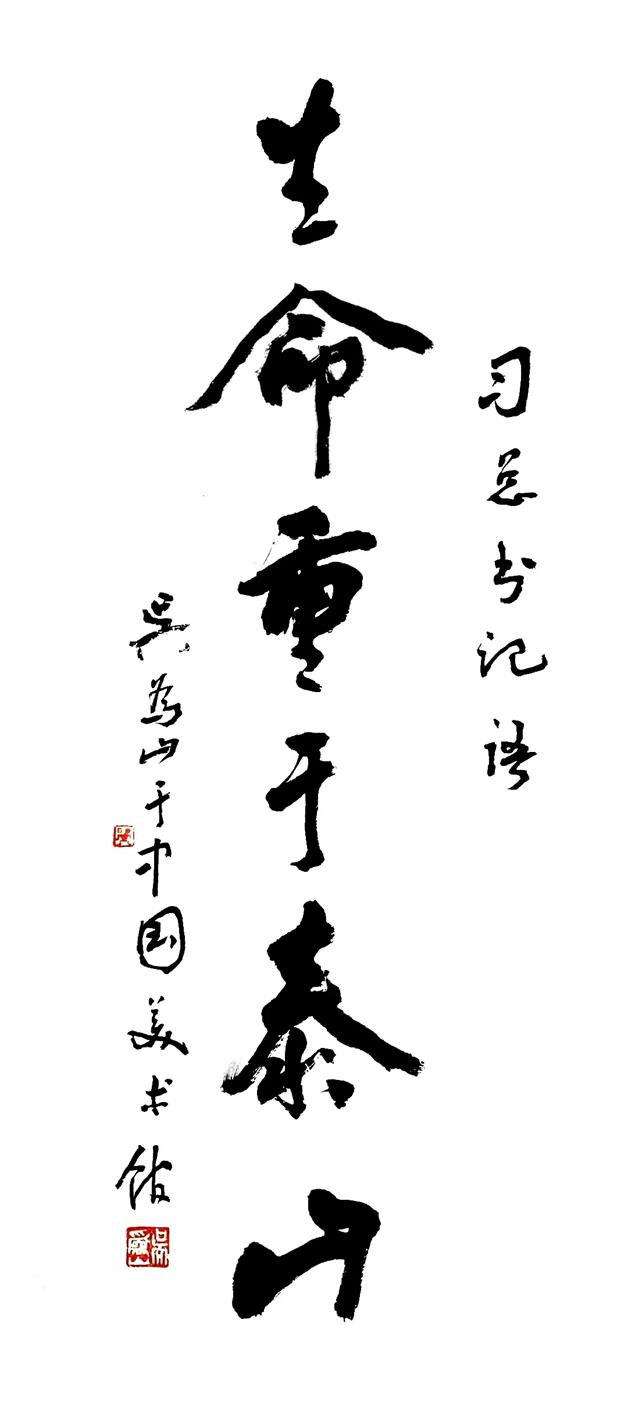 习总书记语
生命重于泰山
吴为山于中国美术馆